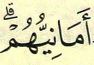 أَمَانِيُّهُمْۗ